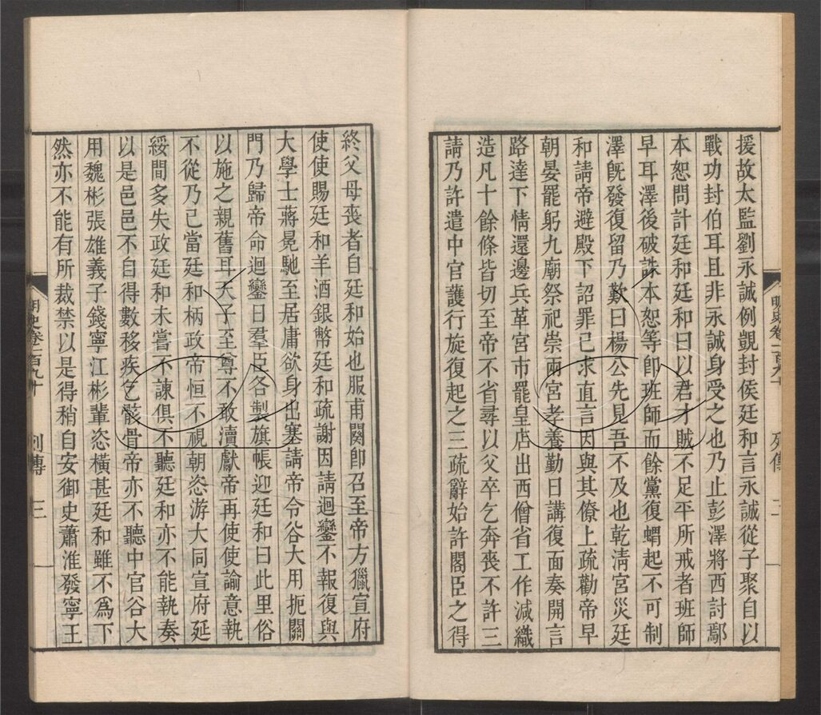 援故太監劉永誠例覬封侯廷和言永誠從子聚自以
戰功封伯耳且非永誠身受之也乃止彭澤將西討鄢
本恕問計廷和廷和曰以君才賊不足平所戒者班師
早耳澤後破誅本恕等卽班師而餘黨復蝟起不可制
澤旣發復留乃歎曰楊公先見吾不及也乾清宮災廷
和請帝避殿下詔罪己求直言因與其僚上疏勸帝早
朝晏罷躬九廟祭祀崇兩宮孝養勤日講復面奏開言
路達下情還邊兵革宮市罷皇店出西僧省工作減織
造凡十餘條皆切至帝不省尋以父卒乞奔喪不許三
請乃許遣中官護行旋復起之三疏辭始許閣臣之得
明史卷一百九十 列傳 二
終父母喪者自廷和始也服甫闋卽召至帝方獵宣府
使使賜廷和羊酒銀幣廷和疏謝因請迴鑾不報復與
大學士蔣冕馳至居庸欲身出塞請帝令谷大用扼關
門乃歸帝命迴鑾日羣臣各製旗帳迎廷和曰此里俗
以施之親舊耳天子至尊不敢瀆獻帝再使使諭意執
不從乃已當廷和柄政帝恒不視朝恣游大同宣府延
綏間多失政廷和未嘗不諫俱不聽廷和亦不能執奏
以是邑邑不自得數移疾乞骸骨帝亦不聽中官谷大
用魏彬張雄義子錢寧江彬輩恣橫甚廷和雖不爲下
然亦不能有所裁禁以是得稍自安御史蕭淮發寧王
明史卷一百九十 列傳 三